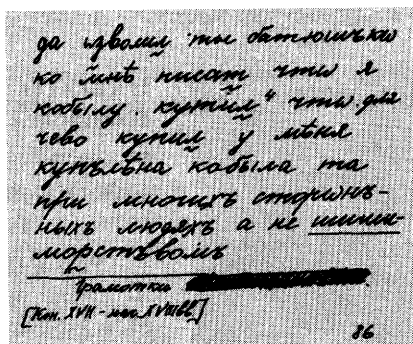 да изволил ты батюшъко
ко мнѣ писат что я
кобылу купил что для
чево купил у мѣня
купълѣна кобыла та
при многихъ сторон-
ныхъ людяхъ а не шиши-
морствъвомъ
Грамотки
[Кн. XVII - нач. XVIII вв.]
86